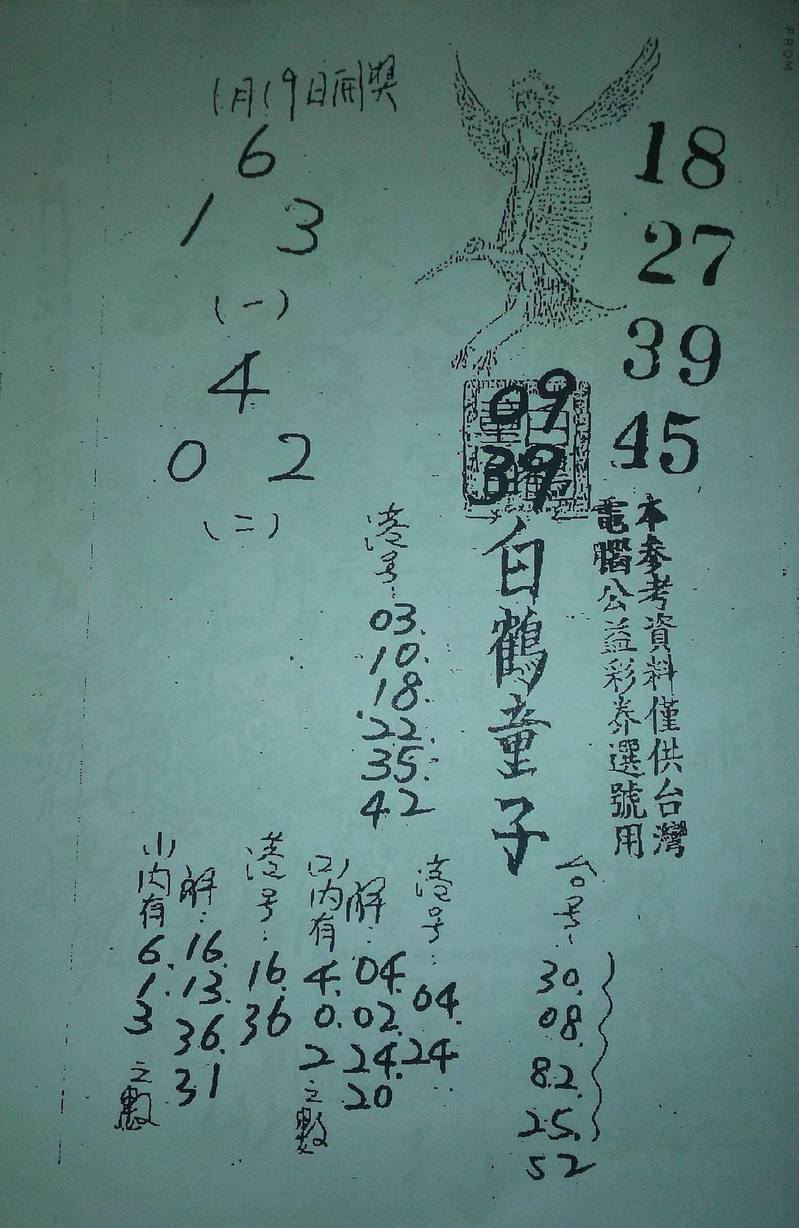 FROM
1月19日開獎
6
1 3
(一)
4
0 2
(二)
18
27
39
45
09
39
白鶴童子
本參考資料僅供台灣
電腦公益彩券選號用
港号:
03.
10.
18.
22.
35.
42
台号:
30.
08.
82.
25.
52
港号:
04.
24
(2)內有
4.
0.
2
之數
解:
04.
02.
24.
20
港号:
16.
36
(1)內有
6.
1.
3
之數
解:
16.
13.
36.
31